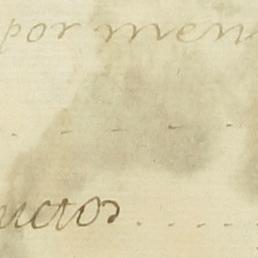 por men
uctos . . . .